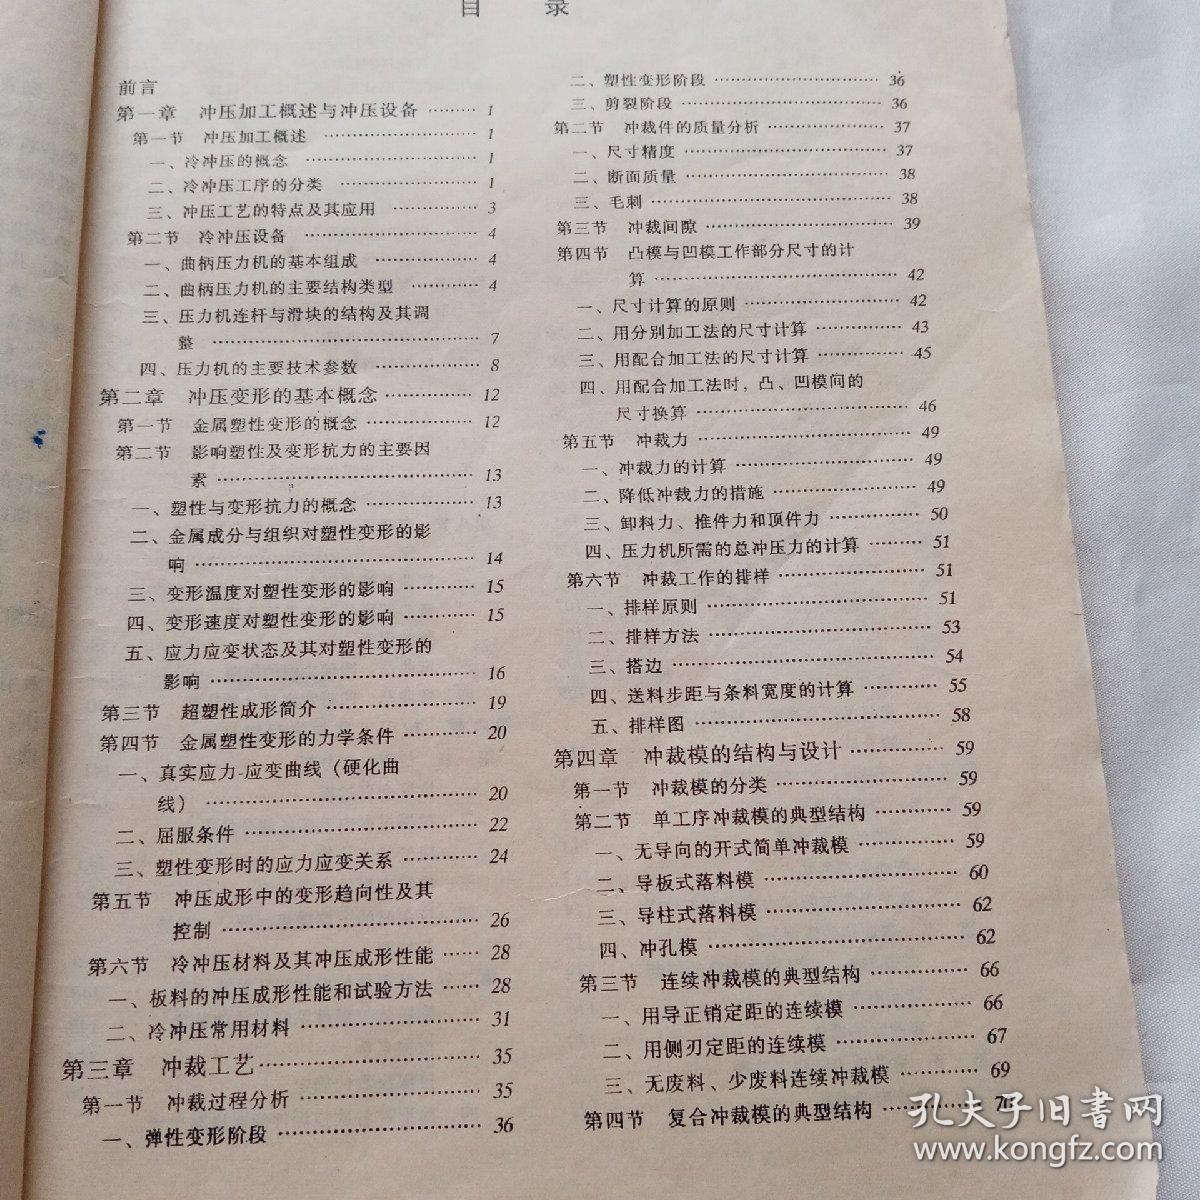 目 录
前言
第一章 冲压加工概述与冲压设备 ········ 1
第一节 冲压加工概述 ········ 1
一、冷冲压的概念 ········ 1
二、冷冲压工序的分类 ········ 1
三、冲压工艺的特点及其应用 ········ 3
第二节 冷冲压设备 ········ 4
一、曲柄压力机的基本组成 ········ 4
二、曲柄压力机的主要结构类型 ········ 4
三、压力机连杆与滑块的结构及其调
整 ········ 7
四、压力机的主要技术参数 ········ 8
第二章 冲压变形的基本概念 ········ 12
第一节 金属塑性变形的概念 ········ 12
第二节 影响塑性及变形抗力的主要因
素 ········ 13
一、塑性与变形抗力的概念 ········ 13
二、金属成分与组织对塑性变形的影
响 ········ 14
三、变形温度对塑性变形的影响 ········ 15
四、变形速度对塑性变形的影响 ········ 15
五、应力应变状态及其对塑性变形的
影响 ········ 16
第三节 超塑性成形简介 ········ 19
第四节 金属塑性变形的力学条件 ········ 20
一、真实应力-应变曲线（硬化曲
线） ········ 20
二、屈服条件 ········ 22
三、塑性变形时的应力应变关系 ········ 24
第五节 冲压成形中的变形趋向性及其
控制 ········ 26
第六节 冷冲压材料及其冲压成形性能 ········ 28
一、板料的冲压成形性能和试验方法 ········ 28
二、冷冲压常用材料 ········ 31
第三章 冲裁工艺 ········ 35
第一节 冲裁过程分析 ········ 35
一、弹性变形阶段 ········ 36
二、塑性变形阶段 ········ 36
三、剪裂阶段 ········ 36
第二节 冲裁件的质量分析 ········ 37
一、尺寸精度 ········ 37
二、断面质量 ········ 38
三、毛刺 ········ 38
第三节 冲裁间隙 ········ 39
第四节 凸模与凹模工作部分尺寸的计
算 ········ 42
一、尺寸计算的原则 ········ 42
二、用分别加工法的尺寸计算 ········ 43
三、用配合加工法的尺寸计算 ········ 45
四、用配合加工法时，凸、凹模间的
尺寸换算 ········ 46
第五节 冲裁力 ········ 49
一、冲裁力的计算 ········ 49
二、降低冲裁力的措施 ········ 49
三、卸料力、推件力和顶件力 ········ 50
四、压力机所需的总冲压力的计算 ········ 51
第六节 冲裁工作的排样 ········ 51
一、排样原则 ········ 51
二、排样方法 ········ 53
三、搭边 ········ 54
四、送料步距与条料宽度的计算 ········ 55
五、排样图 ········ 58
第四章 冲裁模的结构与设计 ········ 59
第一节 冲裁模的分类 ········ 59
第二节 单工序冲裁模的典型结构 ········ 59
一、无导向的开式简单冲裁模 ········ 59
二、导板式落料模 ········ 60
三、导柱式落料模 ········ 62
四、冲孔模 ········ 62
第三节 连续冲裁模的典型结构 ········ 66
一、用导正销定距的连续模 ········ 66
二、用侧刃定距的连续模 ········ 67
三、无废料、少废料连续冲裁模 ········ 69
第四节 复合冲裁模的典型结构 ········ 70
孔夫子旧书网
www.kongfz.com